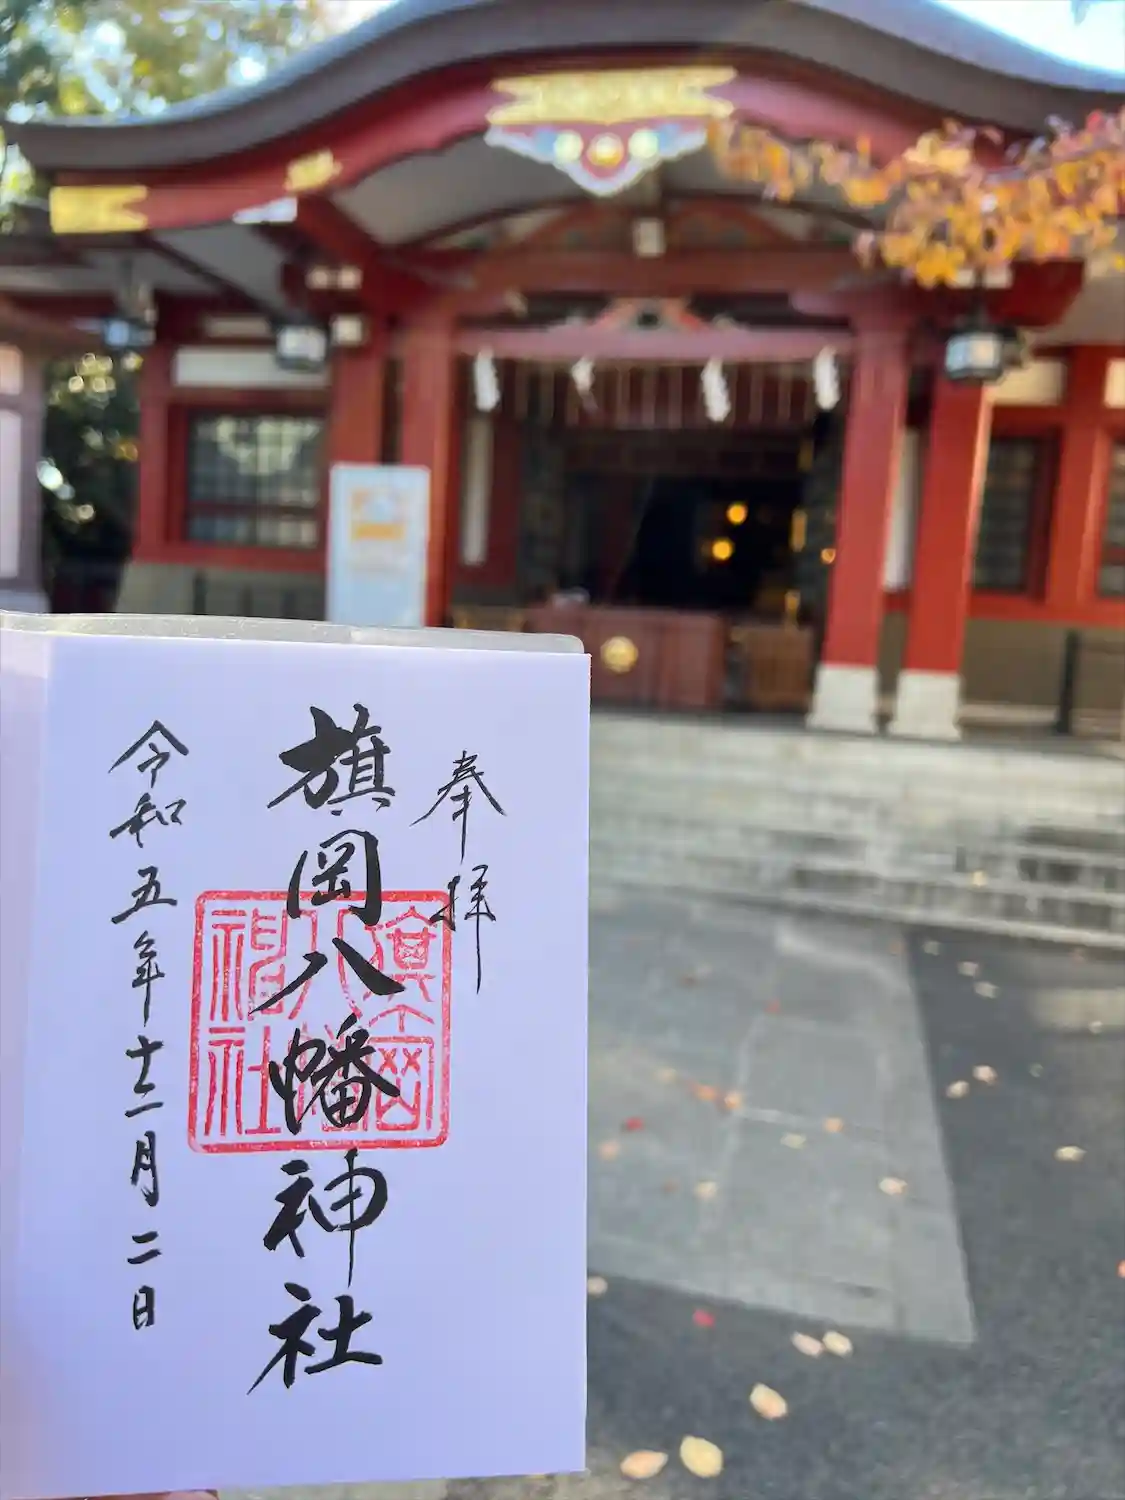 奉拝
旗岡八幡神社
旗岡
八幡
神社
令和五年十二月二日